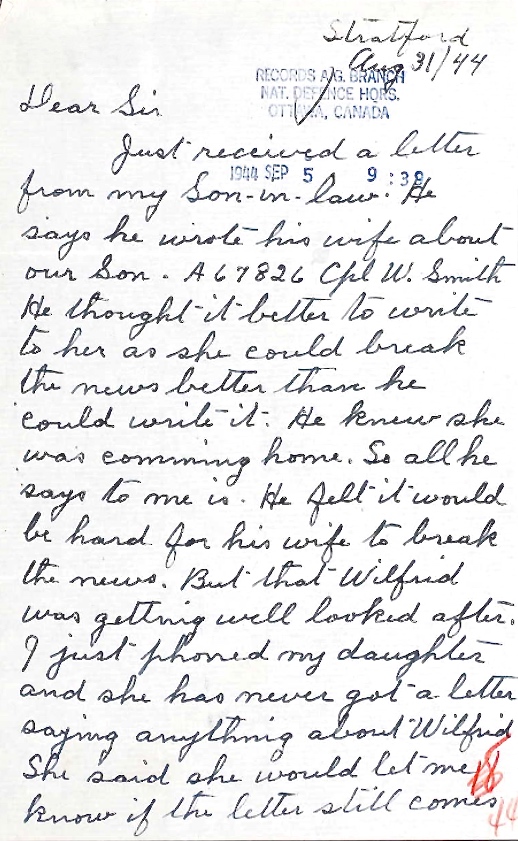 Stratford
Aug 31/44
RECORDS A.G. BRANCH
NAT. DEFENCE HQRS.
OTTAWA, CANADA
Dear Sir
Just received a letter
1944 SEP 5 9:39
from my Son-in-law. He
says he wrote his wife about
our Son. A67826 Cpl W. Smith
He thought it better to write
to her as she could break
the news better than he
could write it. He knew she
was comming home. So all he
says to me is. He felt it would
be hard for his wife to break
the news. But that Wilfrid
was getting well looked after.
I just phoned my daughter
and she has never got a letter
saying anything about Wilfrid
She said she would let me
know if the letter still comes
44